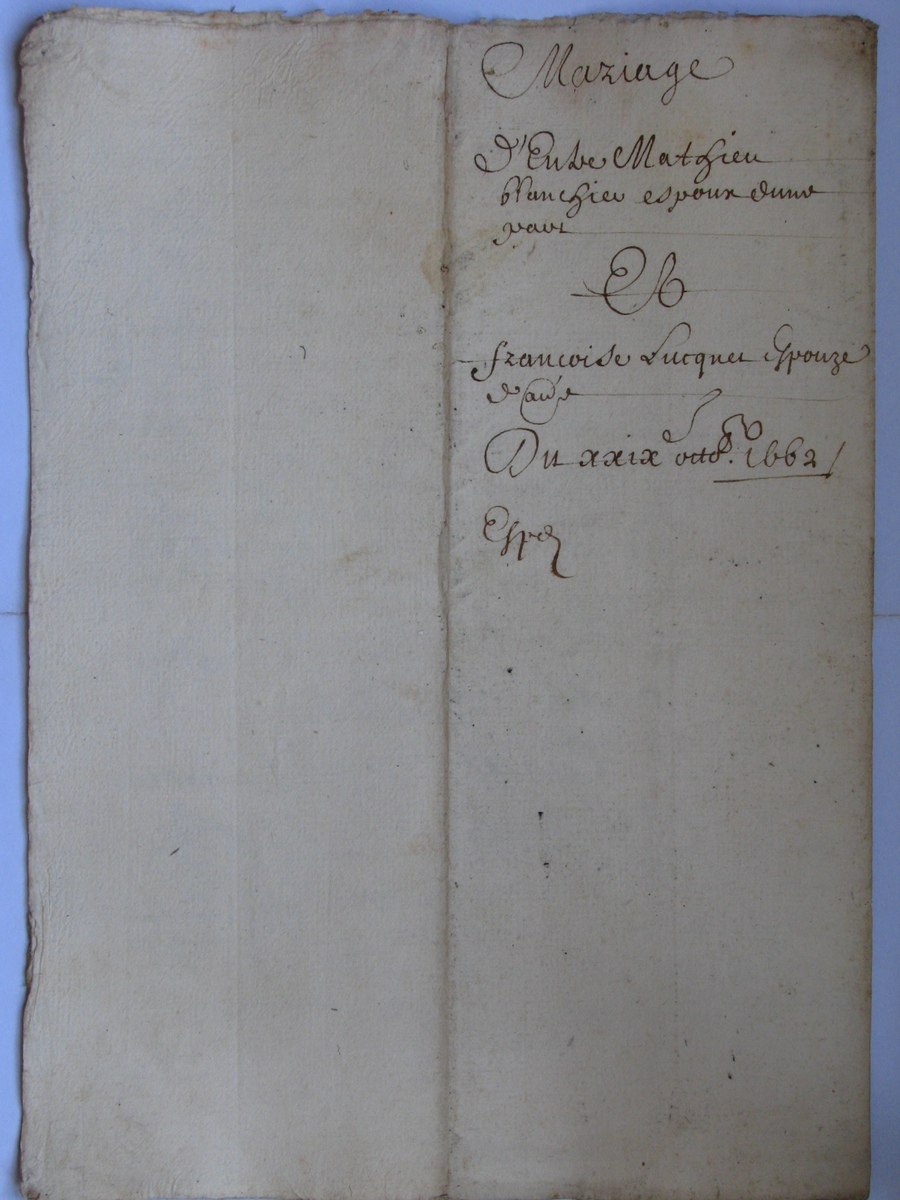 Mariage
D'Entre Mathieu
blanchier espoux dune
part
Et
francoise Lucquet Espouze
d'au.e
Du xxix octob. 1662
Exp.